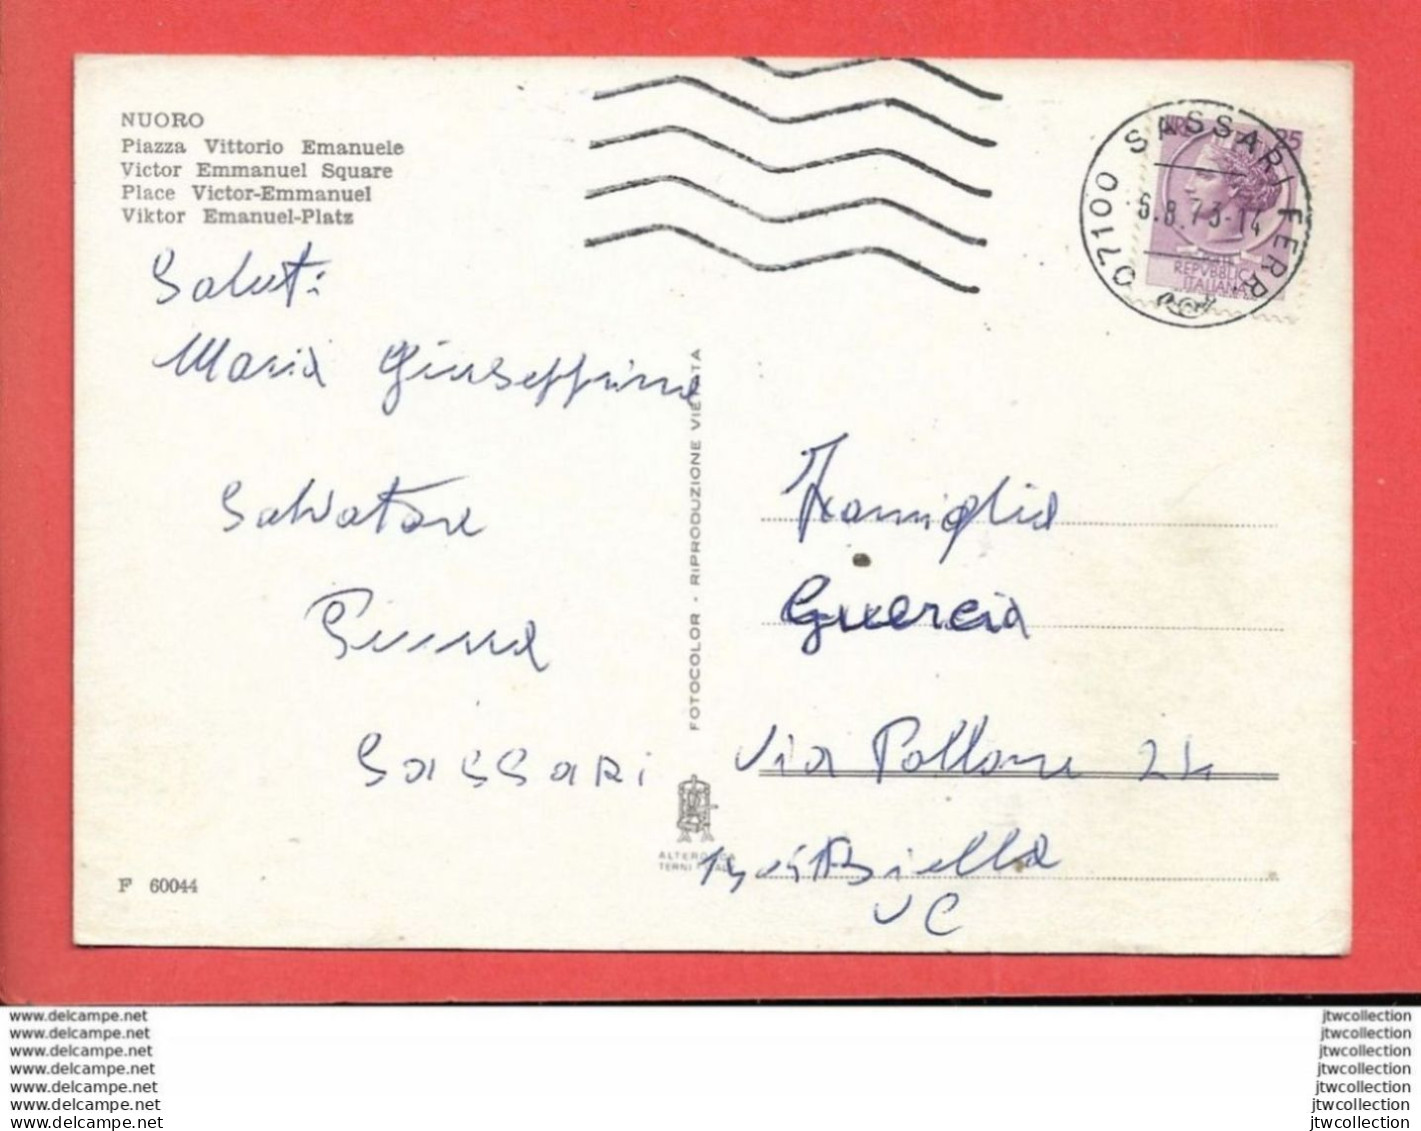 NUORO
Piazza Vittorio Emanuele
Victor Emmanuel Square
Place Victor-Emmanuel
Viktor Emanuel-Platz
Saluti
Maria Giuseppina
Salvatore
Pinna
Sassari
F 60044
FOTOCOLOR - RIPRODUZIONE VIETATA
TERNI
07100 SASSARI FERR.
6.8.73-14
LIRE 25
REPVBBLICA
ITALIANA
Famiglia
Guercia
Via Pollone 24
Biella
VC
www.delcampe.net
www.delcampe.net
www.delcampe.net
www.delcampe.net
www.delcampe.net
www.delcampe.net
www.delcampe.net
jtwcollection
jtwcollection
jtwcollection
jtwcollection
jtwcollection
jtwcollection
jtwcollection